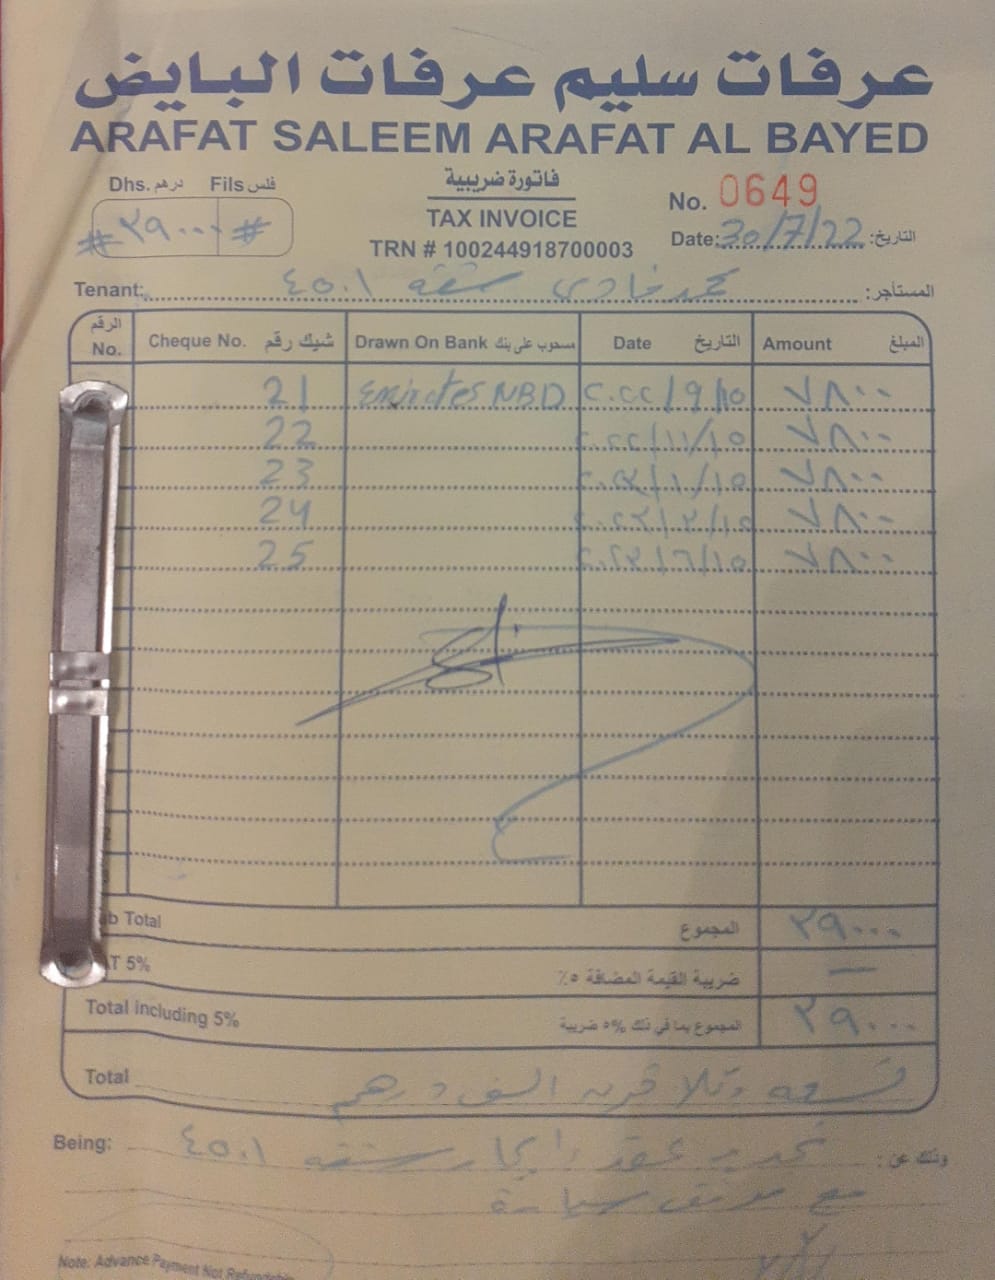 عرفات سليم عرفات البايض
ARAFAT SALEEM ARAFAT AL BAYED
Dhs. درهم Fils فلس
# ٣٩٠٠٠ #
فاتورة ضريبية
TAX INVOICE
TRN # 100244918700003
No. 0649
Date: 30/7/22 التاريخ:
Tenant: محمد فادي شقه ٤٥٠١ المستأجر:
الرقم No. Cheque No. شيك رقم Drawn On Bank مسحوب على بنك Date التاريخ Amount المبلغ
21 Emirates NBD ٢٠٢٢/٩/١٥ ٧٨٠٠
22 ٢٠٢٢/١١/١٥ ٧٨٠٠
23 ٢٠٢٣/١/١٥ ٧٨٠٠
24 ٢٠٢٣/٣/١٥ ٧٨٠٠
25 ٢٠٢٣/٦/١٥ ٧٨٠٠
Total المجموع ٣٩٠٠٠
5% ضريبة القيمة المضافة ٥٪ —
Total including 5% المجموع بما في ذلك ٥% ضريبة ٣٩٠٠٠
Total تسعه وثلاثون الف درهم
Being: تجديد عقد ايجار شقه ٤٥٠١ وذلك عن:
مع موقف سيارة
Note: Advance Payment Not Refundable